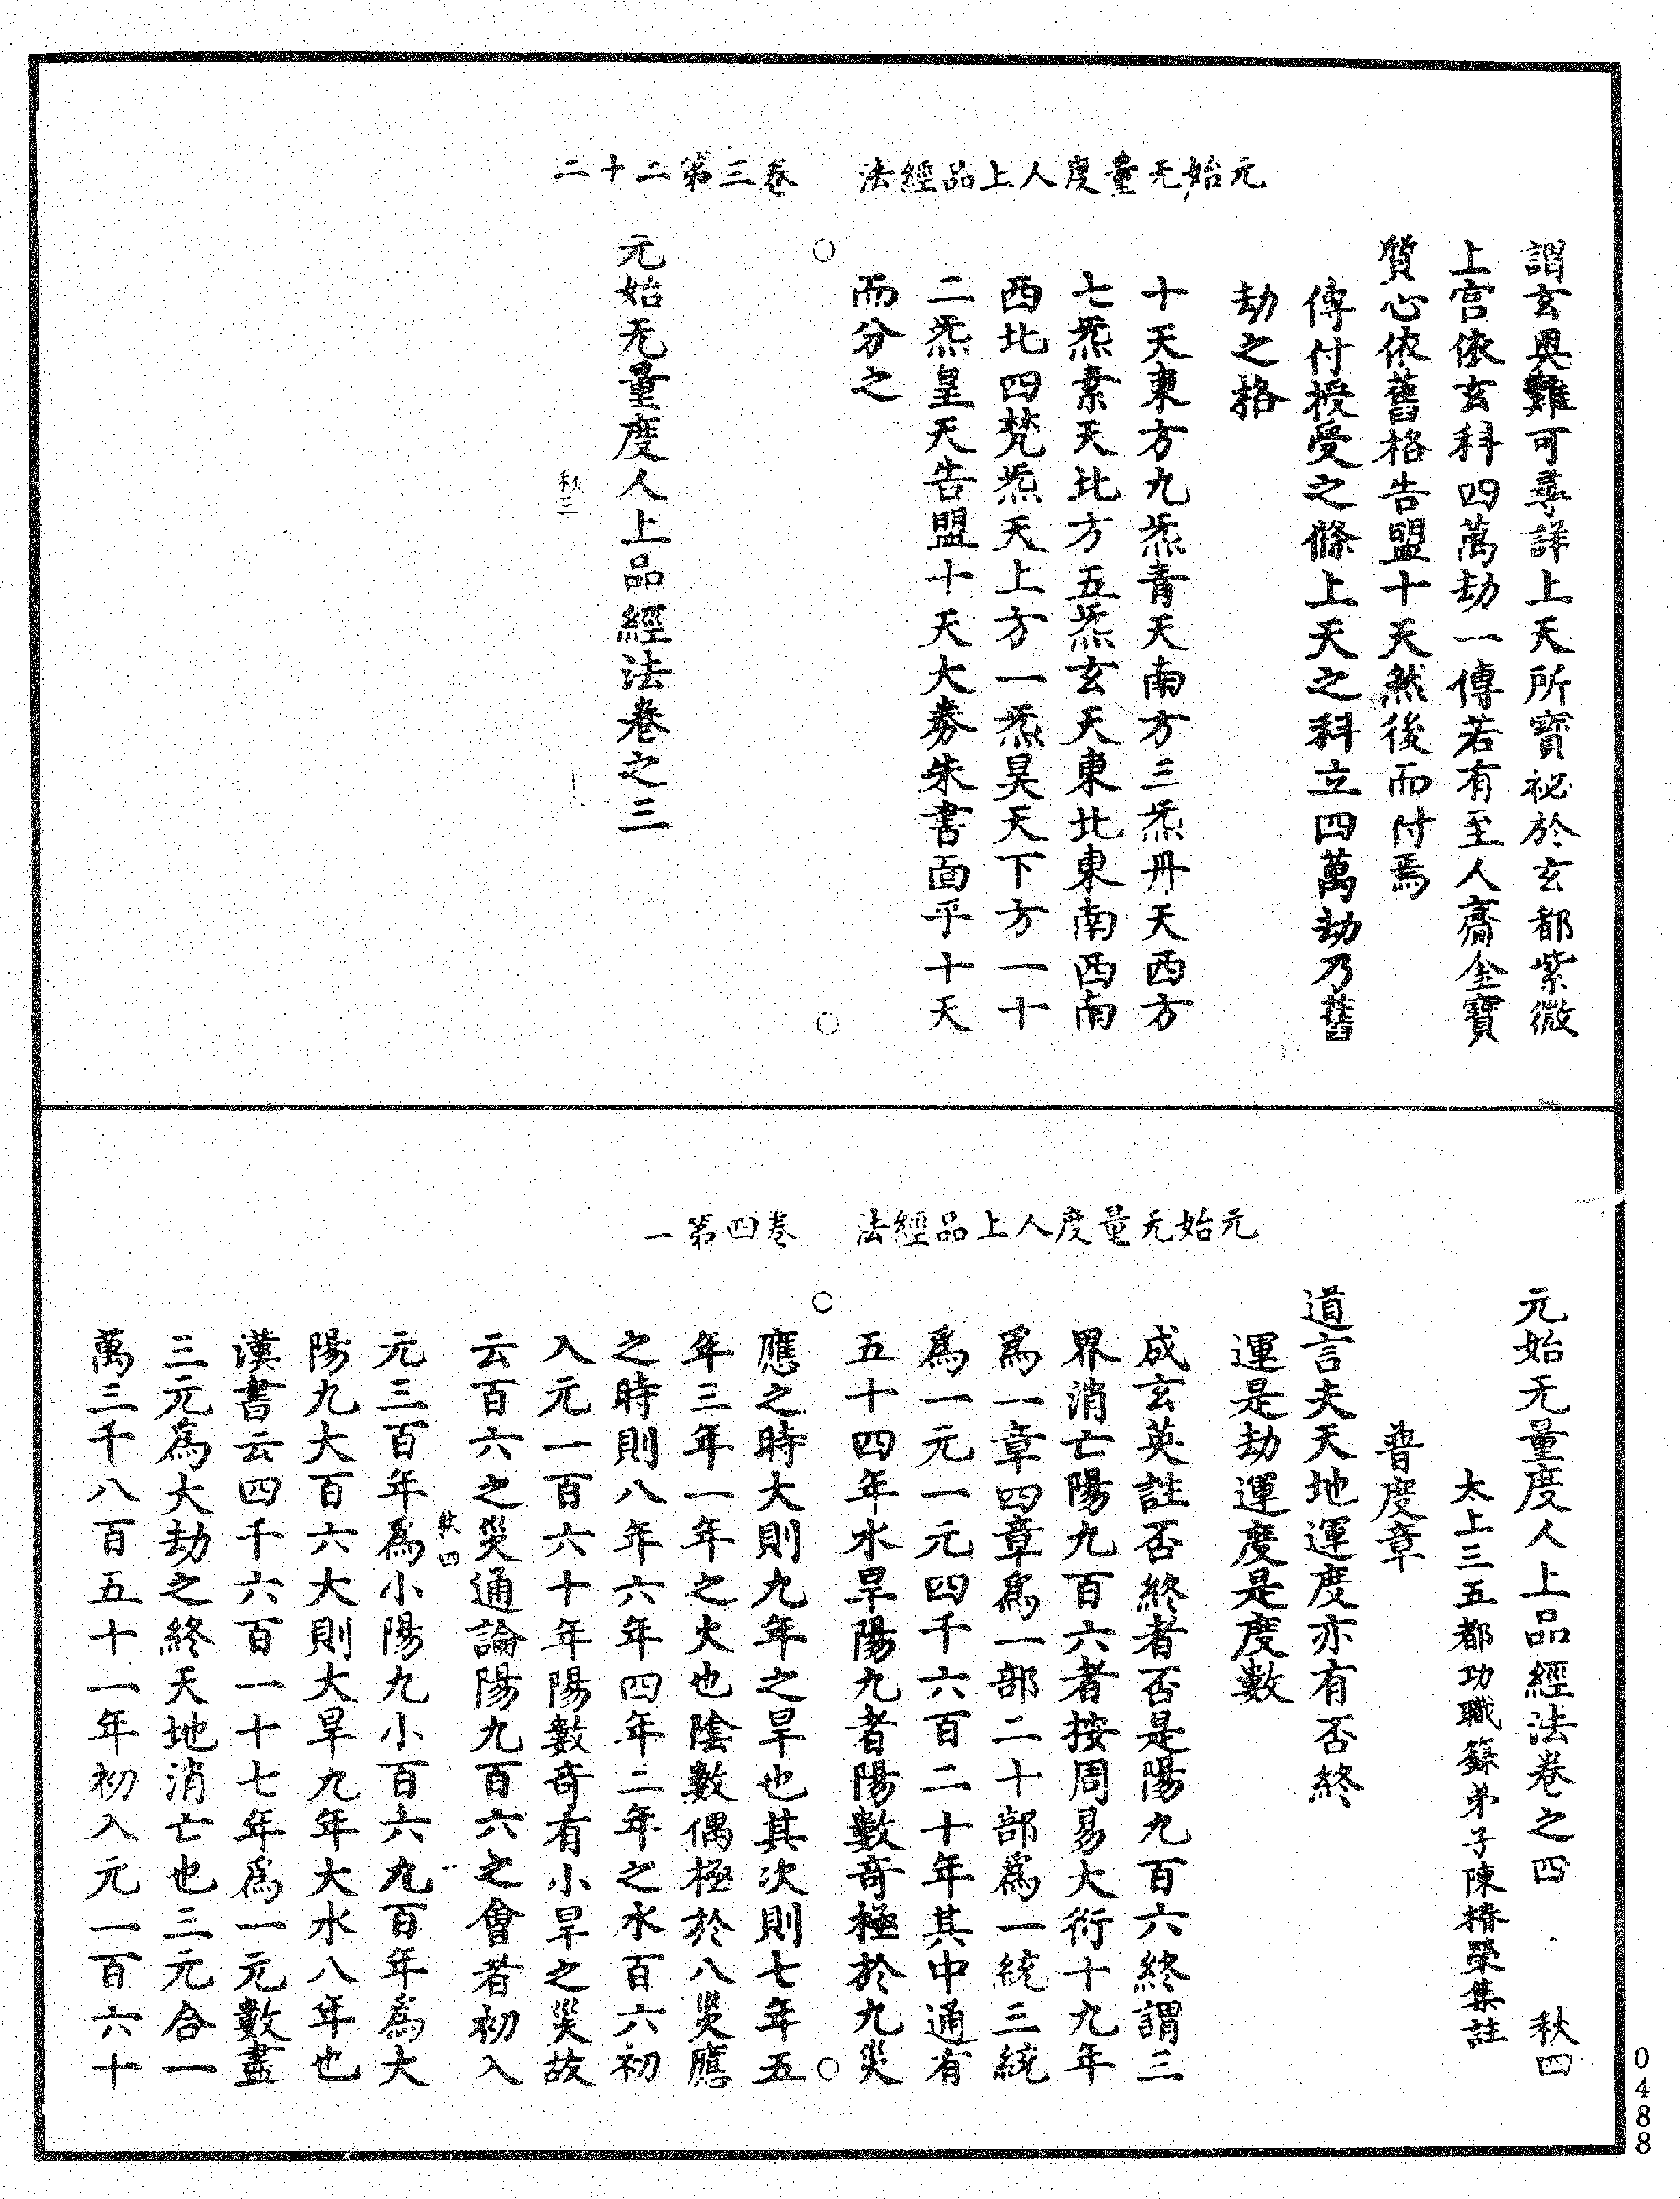 元始无量度人上品經法　卷三第二十二
謂玄奧難可尋詳上天所寶祕於玄都紫微
上宮依玄科四萬劫一傳若有至人齎金寶
質心依舊格告盟十天然後而付焉
傳付授受之條上天之科立四萬劫乃舊
劫之格
十天東方九炁青天南方三炁丹天西方
七炁素天北方五炁玄天東北東南西南
西北四梵炁天上方一炁昊天下方一十
二炁皇天告盟十天大券朱書面乎十天
而分之
元始无量度人上品經法卷之三
秋三
元始无量度人上品經法　卷四第一
元始无量度人上品經法卷之四　秋四
太上三五都功職籙弟子陳椿榮集註
普度章
道言夫天地運度亦有否終
運是劫運度是度數
成玄英註否終者否是陽九百六終謂三
界消亡陽九百六者按周易大衍十九年
爲一章四章爲一部二十部爲一統三統
爲一元一元四千六百二十年其中通有
五十四年水旱陽九者陽數奇極於九災
應之時大則九年之旱也其次則七年五
年三年一年之火也陰數偶極於八災應
之時則八年六年四年二年之水百六初
入元一百六十年陽數奇有小旱之災故
云百六之災通論陽九百六之會者初入
秋四
元三百年爲小陽九小百六九百年爲大
陽九大百六大則大旱九年大水八年也
漢書云四千六百一十七年爲一元數盡
三元爲大劫之終天地消亡也三元合一
萬三千八百五十一年初入元一百六十
0488